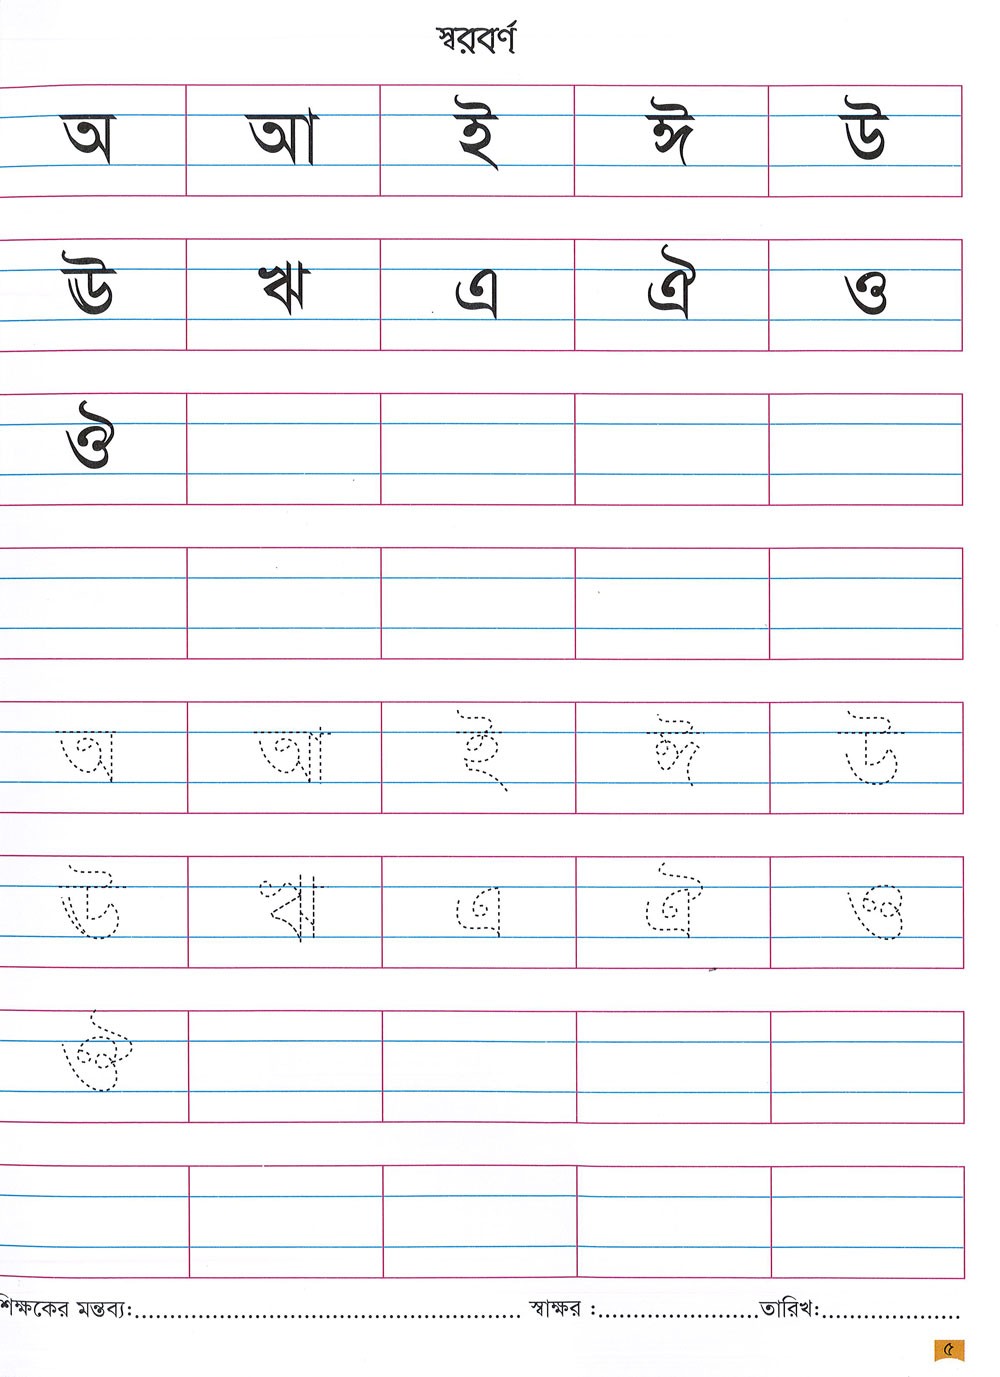 স্বরবর্ণ
অ আ ই ঈ উ
ঊ ঋ এ ঐ ও
ঔ
অ আ ই ঈ উ
ঊ ঋ এ ঐ ও
ঔ
শিক্ষকের মন্তব্য:.................................................... স্বাক্ষর :......................তারিখ:...................
৫